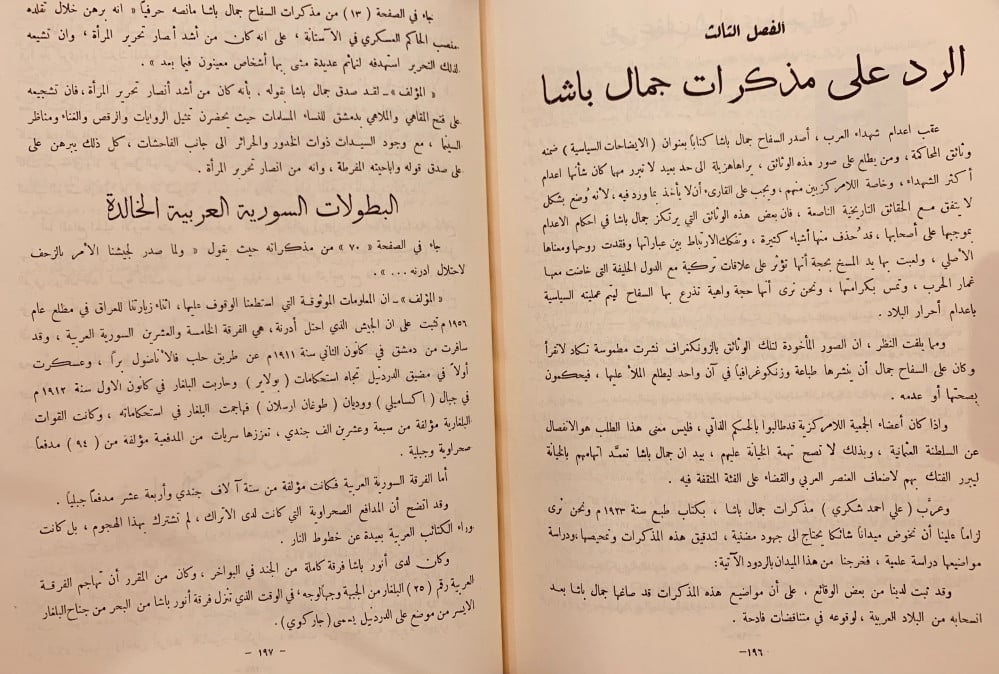 الفصل الثالث
الرد على مذكرات جمال باشا
عقب اعدام شهداء العرب ، أصدر السفاح جمال باشا كتاباً بعنوان ( الايضاحات السياسية ) ضمنه
وثائق المحاكمة ، ومن يطلع على صور هذه الوثائق ، يراها هزيلة الى حد بعيد لا تبرر مهما كان شأنها اعدام
أكثر الشهداء ، وخاصة اللامركزيين منهم ، ويجب على القارىء أن لا يأخذ بما ورد فيه ، لأنه وُضع بشكل
لا يتفق مع الحقائق التاريخية الناصعة ، فان بعض هذه الوثائق التي يرتكز جمال باشا في احكام الاعدام
بموجبها على أصحابها ، قد حُذف منها أشياء كثيرة ، وتفكك الارتباط بين عباراتها وفقدت روحها ومعناها
الأصلي ، ولعبت بها يد المسخ بحجة أنها تؤثر على علاقات تركية مع الدول الحليفة التي خاضت معها
غمار الحرب ، وتمس بكرامتها ، ونحن نرى أنها حجة واهية تذرع بها السفاح ليتم عمليته السياسية
باعدام أحرار البلاد .
ومما يلفت النظر ، ان الصور المأخوذة لتلك الوثائق بالزونكغراف نشرت مطموسة تكاد لا تقرأ
وكان على السفاح جمال أن ينشرها طباعة وزنكوغرافياً في آن واحد ليطلع الملأ عليها ، فيحكمون
بصحتها أو عدمه .
واذا كان أعضاء الجمعية اللامركزية قد طالبوا بالحكم الذاتي ، فليس معنى هذا الطلب هو الانفصال
عن السلطنة العثمانية ، وبذلك لا تصح تهمة الخيانة عليهم ، بيد ان جمال باشا تعمَّد اتهامهم بالخيانة
ليبرر الفتك بهم لاضعاف العنصر العربي والقضاء على الفئة المثقفة فيه .
وعرَّب ( علي احمد شكري ) مذكرات جمال باشا ، بكتاب طبع سنة ١٩٢٣ م ونحن نرى
لزاماً علينا أن نخوض ميداناً شائكاً يحتاج الى جهود مضنية ، لتدقيق هذه المذكرات وتمحيصها ، ودراسة
مواضيعها دراسة علمية ، فخرجنا من هذا الميدان بالردود الآتية :
وقد ثبت لدينا من بعض الوقائع ، على أن مواضيع هذه المذكرات قد صاغها جمال باشا بعد
انسحابه من البلاد العربية ، لوقوعه في متناقضات فادحة .
—١٩٦—
جاء في الصفحة ( ١٣ ) من مذكرات السفاح جمال باشا مانصه حرفياً « انه برهن خلال تقلده
منصب الحاكم العسكري في الآستانة ، على انه كان من أشد أنصار تحرير المرأة ، وان تشيعه
لذلك التحرير استهدفه لتهائم عديدة مشى بها أشخاص معينون فيما بعد » .
« المؤلف » ـ لقد صدق جمال باشا بقوله . بأنه كان من أشد أنصار تحرير المرأة ، فان تشجيعه
على فتح المقاهي والملاهي بدمشق للنساء المسلمات حيث يحضرن تمثيل الروايات والرقص والغناء ومناظر
السينما ، مع وجود السيدات ذوات الخدور والحرائر الى جانب الفاحشات ، كل ذلك يبرهن على
على صدق قوله واباحيته المفرطة ، وانه من انصار تحرير المرأة .
البطولات السورية العربية الخالدة
جاء في الصفحة « ٧٠ » من مذكراته حيث يقول « ولما صدر لجيشنا الأمر بالزحف
لاحتلال ادرنه ... » .
« المؤلف » ـ ان المعلومات الموثوقة التي استطعنا الوقوف عليها ، اثناء زيارتنا للعراق في مطلع عام
١٩٥٦ م تثبت على ان الجيش الذي احتل أدرنة ، هي الفرقة الخامسة والعشرين السورية العربية ، وقد
سافرت من دمشق في كانون الثاني سنة ١٩١١ م عن طريق حلب فالاناضول براً ، وعسكرت
أولاً في مضيق الدردنيل تجاه استحكامات ( بولاير ) وحاربت البلغار في كانون الاول سنة ١٩١٢ م
في جبال ( اكساميلي ) ووديان ( طوغان ارسلان ) فهاجمت البلغار في استحكاماته ، وكانت القوات
البلغارية مؤلفة من سبعة وعشرين الف جندي ، تعززها سريات من المدفعية مؤلفة من ( ٩٤ ) مدفعاً
صحراوية وجبلية .
أما الفرقة السورية العربية فكانت مؤلفة من ستة آلاف جندي وأربعة عشر مدفعاً جبلياً .
وقد اتضح أن المدافع الصحراوية التي كانت لدى الأتراك ، لم تشترك بهذا الهجوم ، بل كانت
وراء الكتائب العربية بعيدة عن خطوط النار .
وكان لدى أنور باشا فرقة كاملة من الجند في البواخر ، وكان من المقرر أن تهاجم الفرقة
العربية رقم ( ٢٥ ) البلغار من الجبهة وجهالوجه ، في الوقت الذي تنزل فرقة أنور باشا من البحر من جناح البلغار
الايسر من موضع على الدردنيل يسمى ( جاركوي ) .
— ١٩٧ —